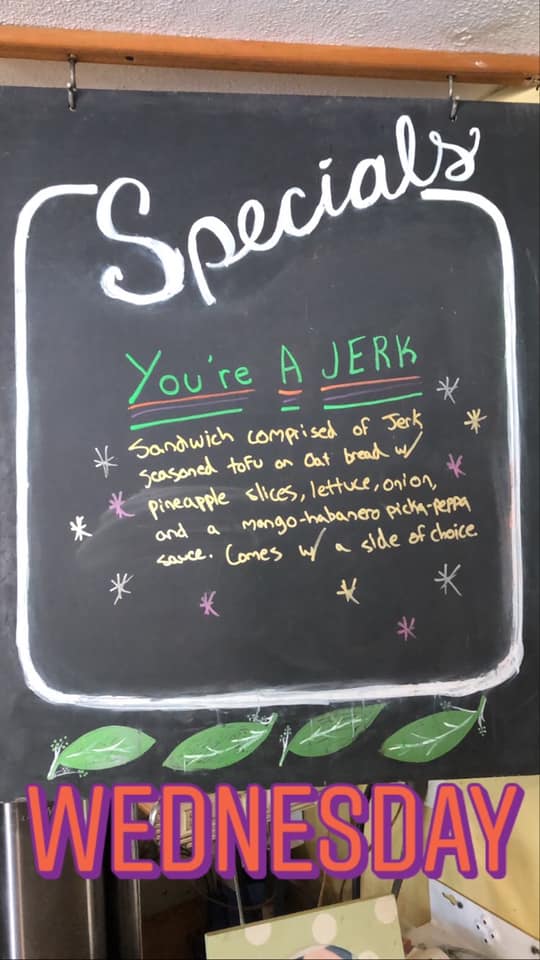 Specials
You're A JERK
Sandwich comprised of Jerk
seasoned tofu on Oat bread w/
pineapple slices, lettuce, onion,
and a mango-habanero picka-peppa
sauce. Comes w/ a side of choice
WEDNESDAY